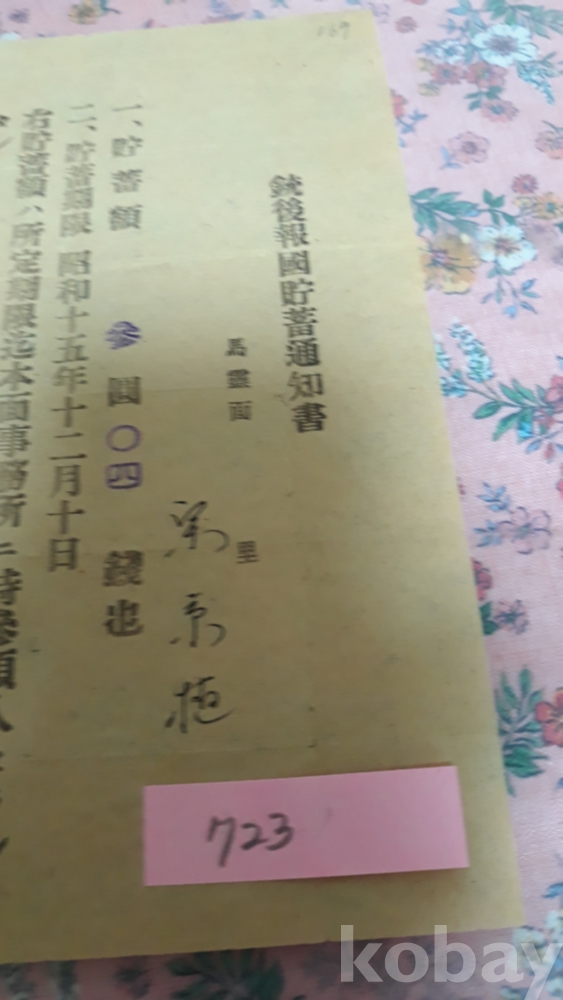 169
銃後報國貯蓄通知書
馬靈面
里
一、貯蓄額 參圓〇四錢也
二、貯蓄期限 昭和十五年十二月十日
右貯蓄額ハ所定期限迄本面事務所ニ持參
723
kobay